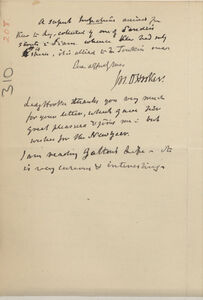 A superb Impatiens arrived for
Kew to day, collected by one of Sanders
in Siam whence this had only
it is allied to the Tonkin ones
Ever affectly yrs
J. D. Hooker.
Lady Hooker thanks you very much
for your letter, which gave her
great pleasure & joins me in best
wishes for the New Year.
I am reading Galton's Life — it
is very curious & interesting.
208
310